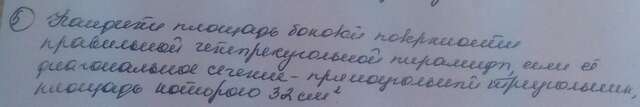 5) Найдите площадь боковой поверхности
правильной четырехугольной пирамиды, если её
диагональное сечение - прямоугольный треугольник,
площадь которого 32 см²